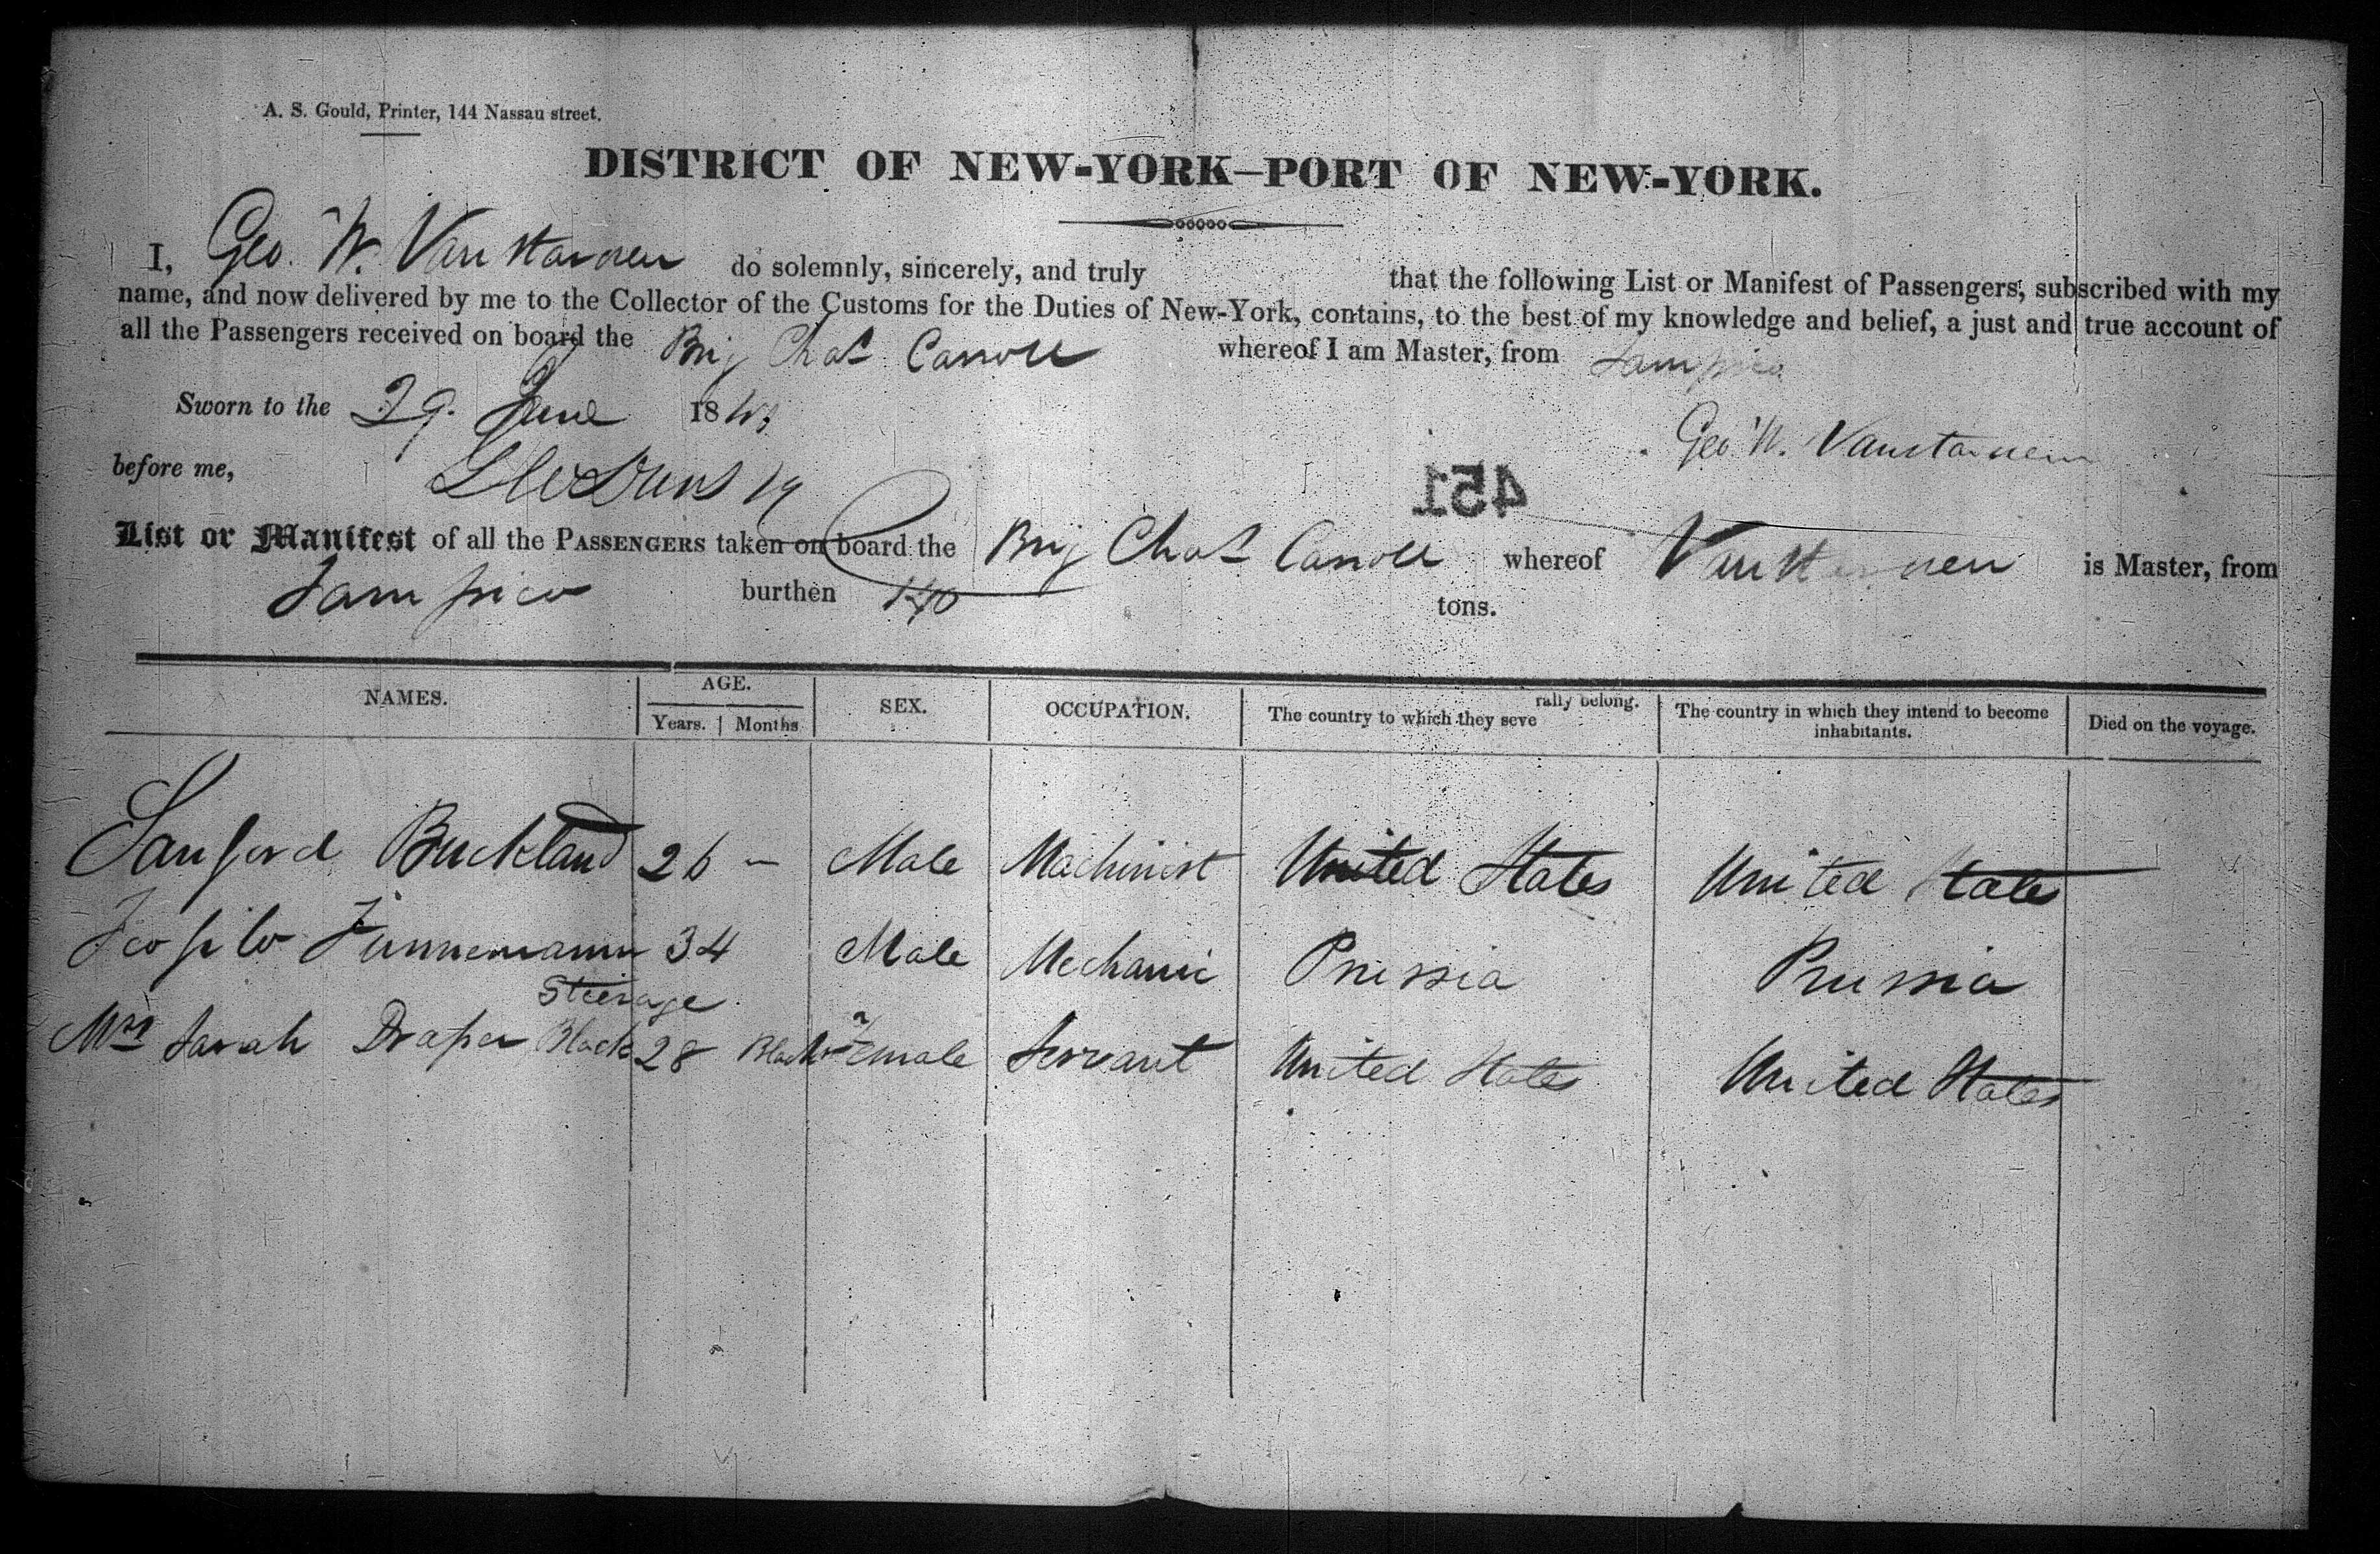 A. S. Gould, Printer, 144 Nassau street.
DISTRICT OF NEW-YORK—PORT OF NEW-YORK.
I, Geo. W. do solemnly, sincerely, and truly that the following List or Manifest of Passengers, subscribed with my
name, and now delivered by me to the Collector of the Customs for the Duties of New-York, contains, to the best of my knowledge and belief, a just and true account of
all the Passengers received on board the Brig Chas Carroll whereof I am Master, from Tampico
Sworn to the 29. June 18
Geo. W.
before me,
451
List or Manifest of all the PASSENGERS taken on board the Brig Chas Carroll whereof is Master, from
Tampico burthen 140 tons.
NAMES. AGE. Years. Months SEX. OCCUPATION. The country to which they severally belong. The country in which they intend to become inhabitants. Died on the voyage.
Sanford Buckland 26 — Male Machinist United States United States
Teofilo Finnemann 34 Male Mechanic Prussia Prussia
Steerage
Mrs Sarah Draper Black 28 Black Female Servant United States United States